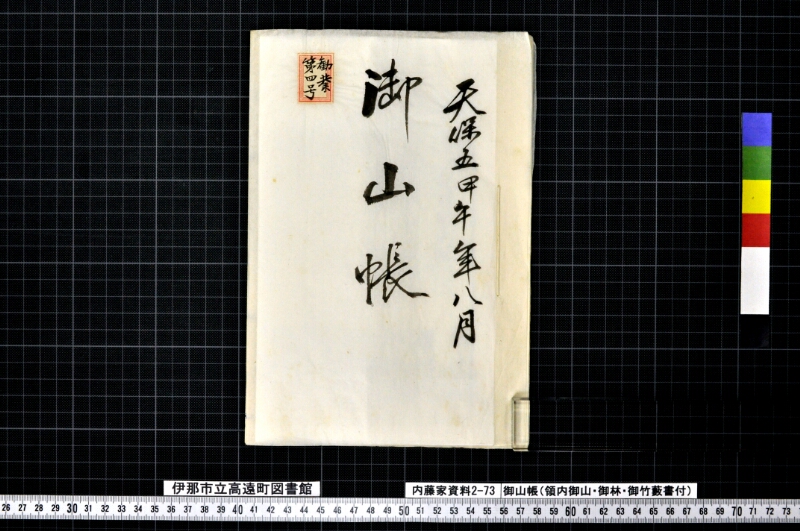 天保五甲午年八月
御山帳
勧業
第四号
伊那市立高遠町図書館
内藤家資料2-73 御山帳(領内御山・御林・御竹藪書付)
26 27 28 29 30 31 32 33 34 35 36 37 38 39 40 41 42 43 44 45 46 47 48 49 50 51 52 53 54 55 56 57 58 59 60 61 62 63 64 65 66 67 68 69 70 71 72 73